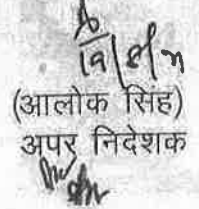 (आलोक सिंह)
अपर निदेशक